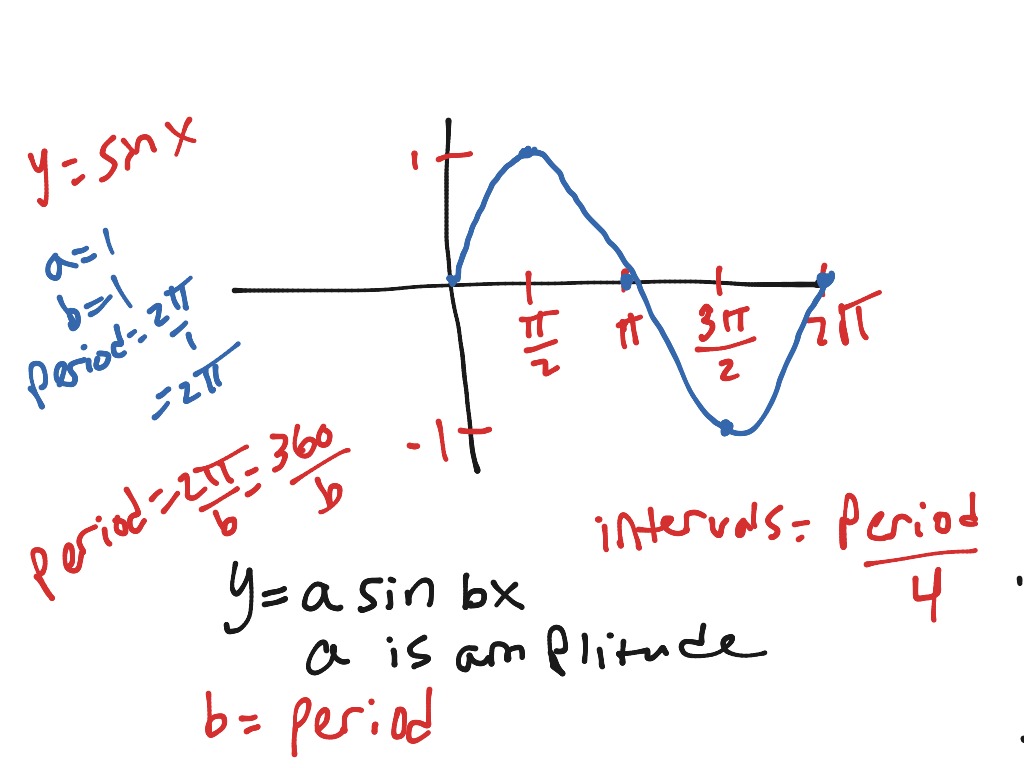 y = sin x
a = 1
b = 1
period = 2π/1
= 2π
period = 2π/b = 360/b
1
-1
π/2 π 3π/2 2π
intervals = period/4
y = a sin bx
a is amplitude
b = period